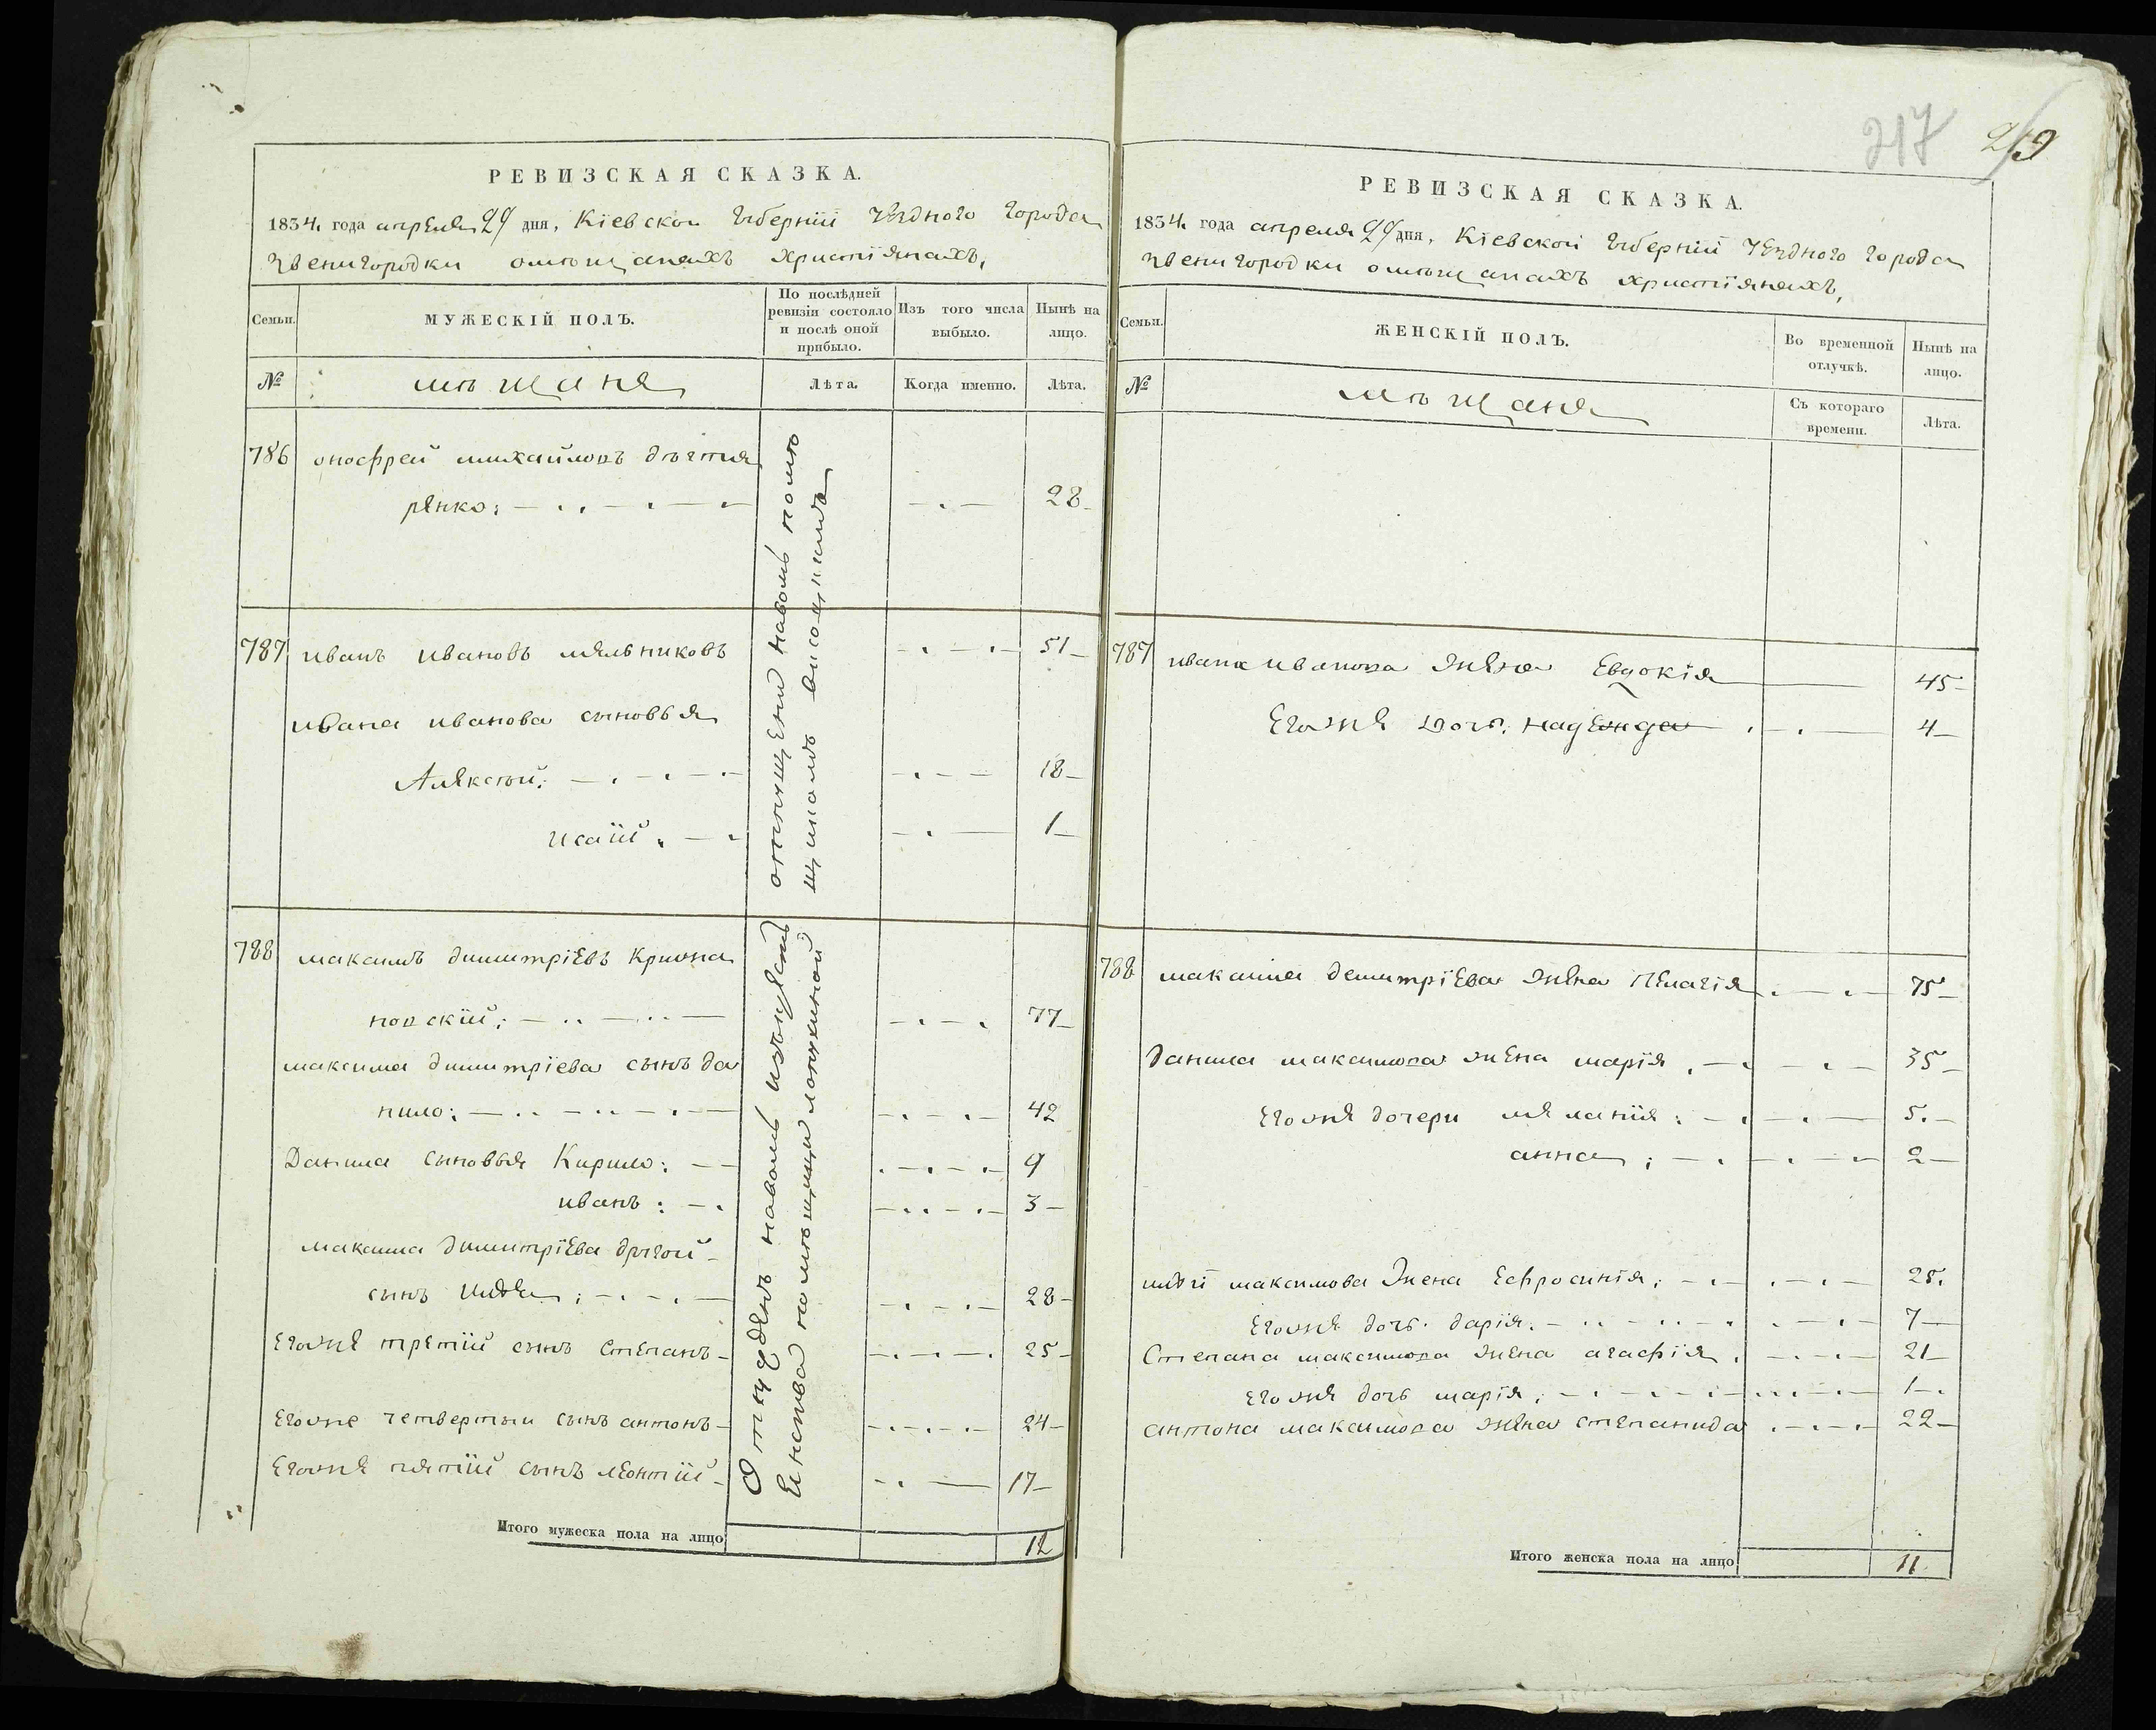 217 219
РЕВИЗСКАЯ СКАЗКА.
1834. года апреля 29 дня, Кіевской Губерніи Уезднаго города
Звенигородки омѣщанахъ христіянахъ,
Семьи.
МУЖЕСКІЙ ПОЛЪ.
По послѣдней ревизіи состояло и послѣ оной прибыло.
Изъ того числа выбыло.
Нынѣ на лицо.
№
мѣщаня
Лѣта.
Когда именно.
Лѣта.
786 онофрей михайловъ
ренко: 28
787 иванъ ивановъ мельниковъ 51
ивана иванова сыновья
Алексѣй: 18
исаій 1
отпущени
788 максимъ димитріевъ
77
максима димитріева сынъ да
нило: 42
Данила сыновья Кирило: 9
иванъ: 3
максима димитріева другой
сынъ 28
Егоже третій сынъ степанъ 25
Егоже четвертый сынъ антонъ 24
Егоже пятій сынъ леонтій 17
Итого мужеска пола на лицо 12
РЕВИЗСКАЯ СКАЗКА.
1834. года апреля 29 дня, Кіевской Губерній Уезднаго города
Звенигородки омѣщанахъ христіянахъ,
Семьи.
ЖЕНСКІЙ ПОЛЪ.
Во временной отлучкѣ.
Нынѣ на лицо.
№
мѣщаня
Съ котораго времени.
Лѣта.
787 ивана иванова жена Евдокія 45
Егоже дочь надежда 4
788 максима демитріева жена Пелагія 75
Данила максимова жена марія 35
Егоже дочери меланія: 5
анна; 2
максимова жена Ефросинія; 25
Егоже дочь дарія. 7
Степана максимова жена агафія 21
Егоже дочь марія; 1
антона максимова жена степанида 22
Итого женска пола на лицо 11